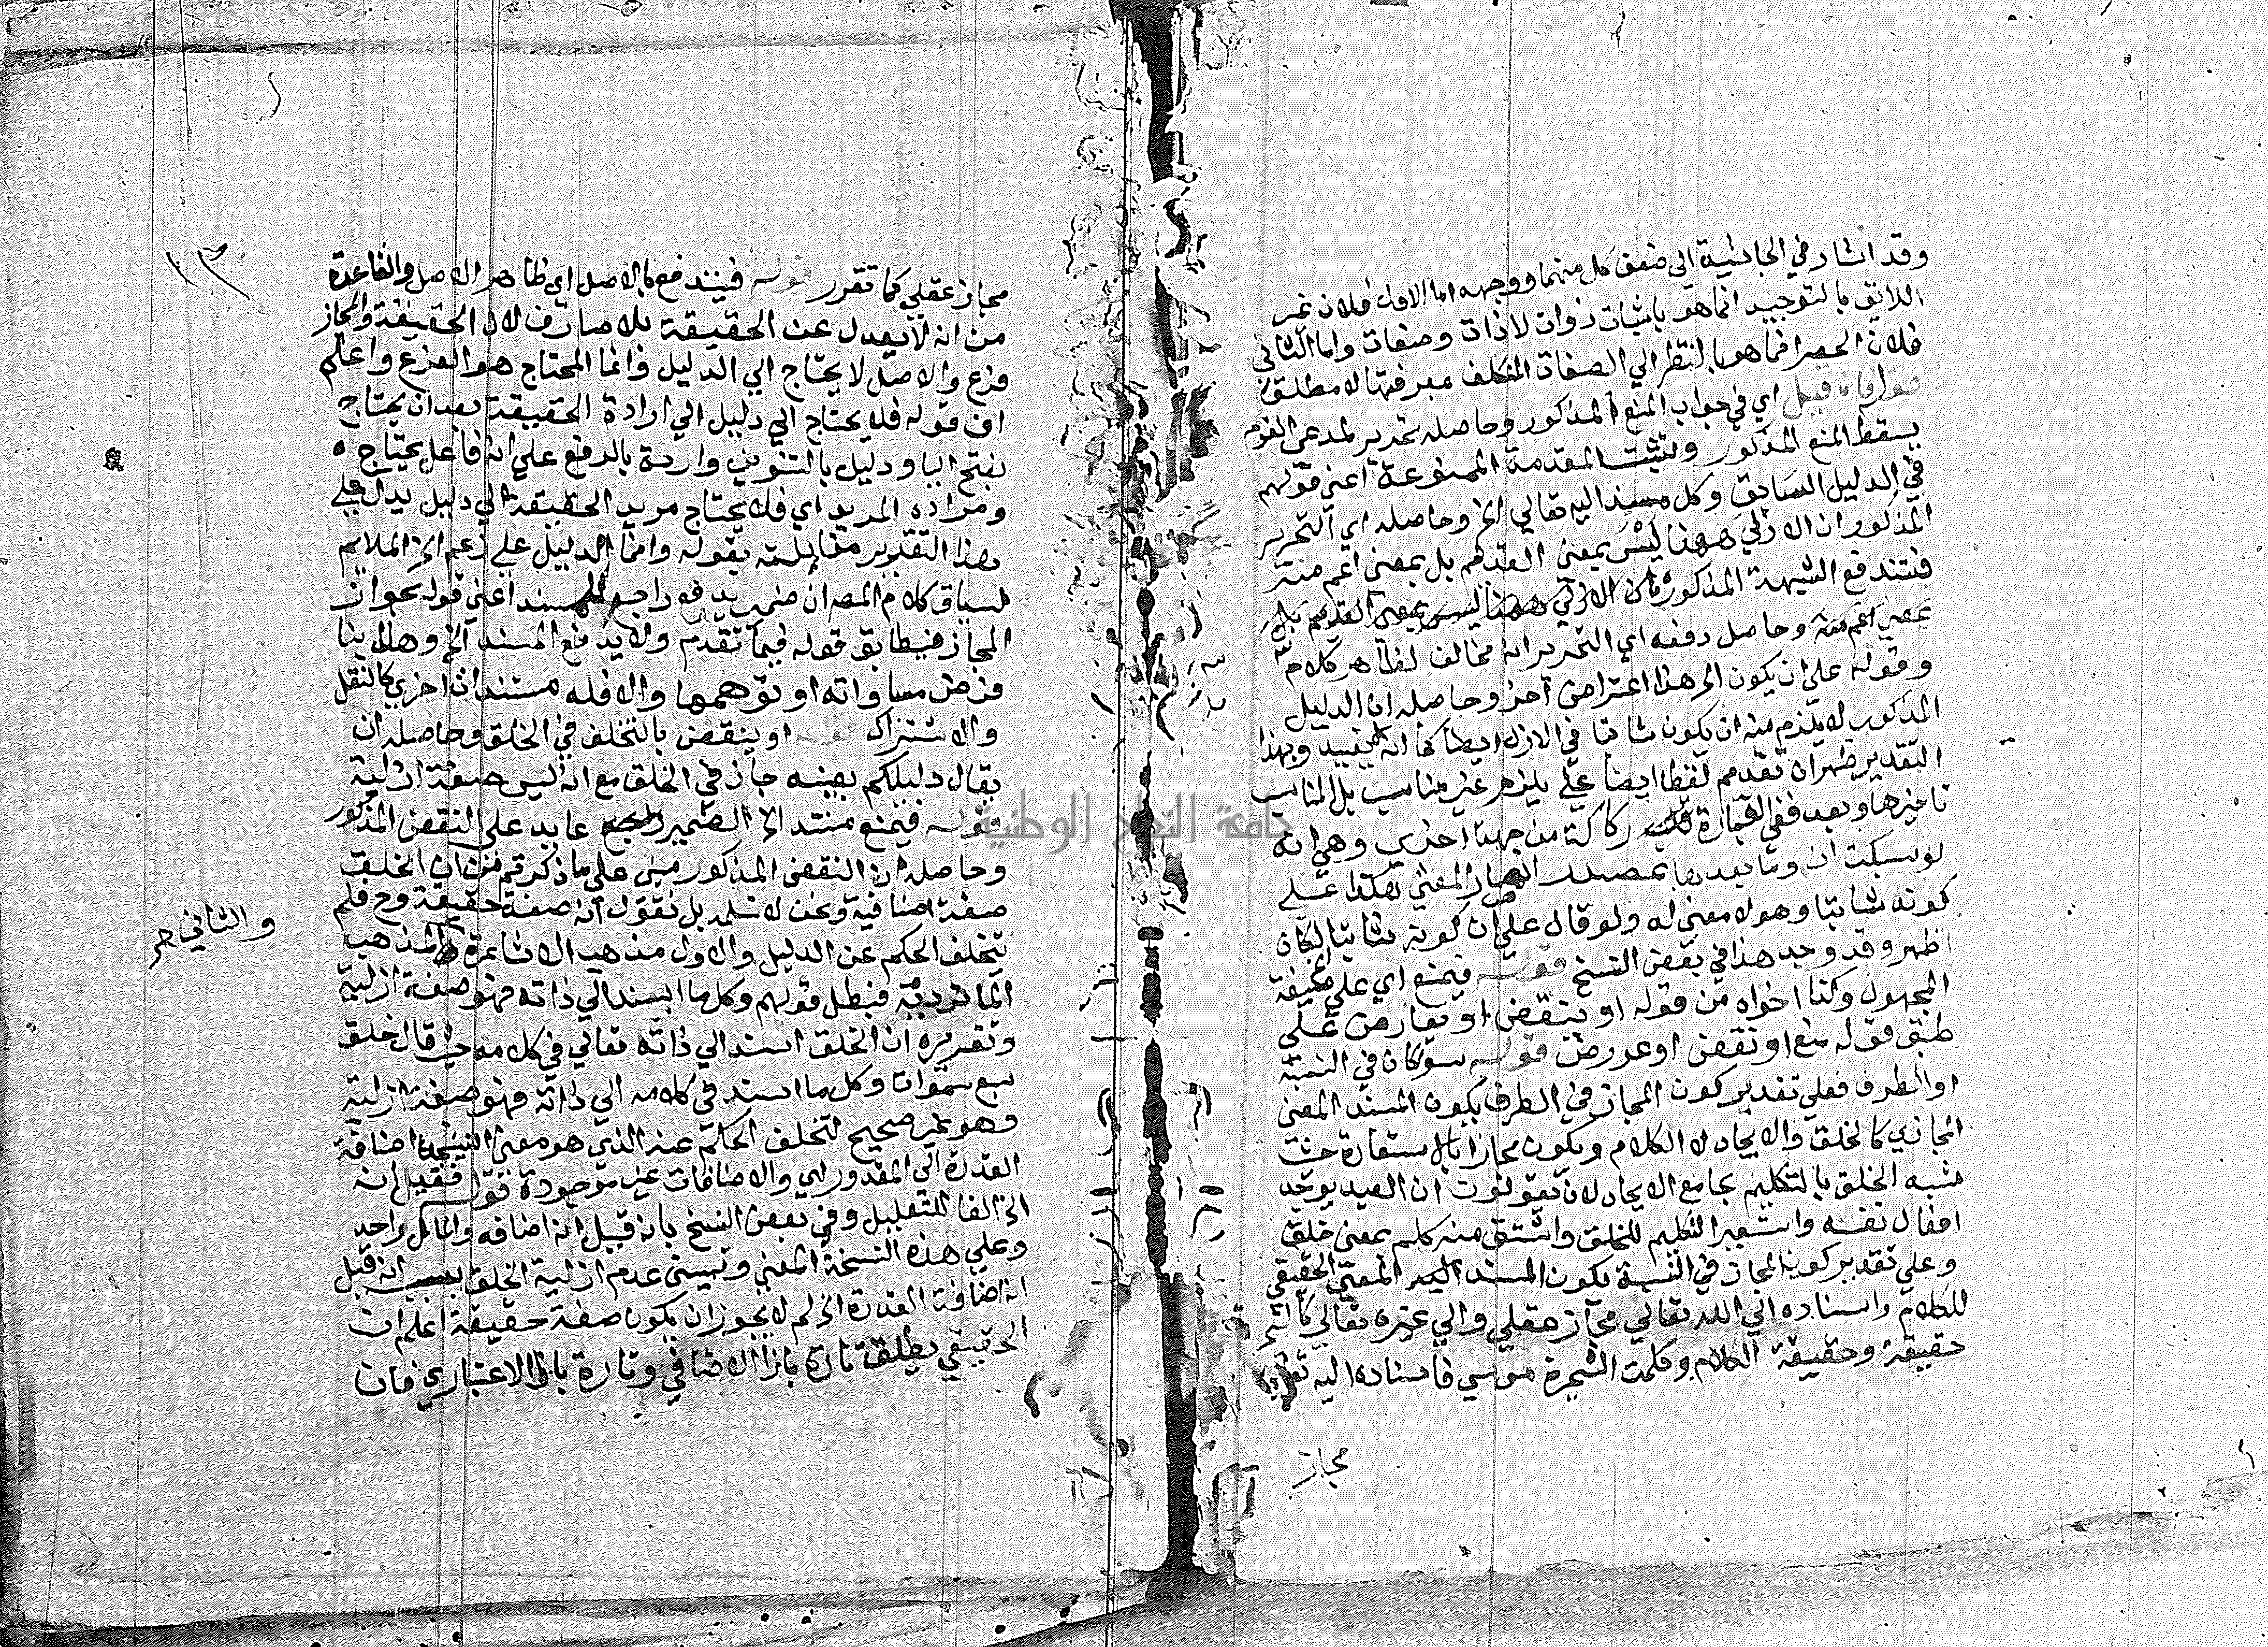 وقد اشار في الحاشية الى ضعف كل منهما ووجهه اما الاول فلان غير
اللايق بالتوحيد انما هو باثبات ذوات لا ذات وصفات واما الثاني
فلان الحصر انما هو بالنظر الي الصفات المكلف بمعرفتها لا مطلقا
قوله فان قيل اي في جواب المنع المذكور وحاصله تحرير لمدعي القوم
يسقط المنع المذكور وتثبت المقدمة الممنوعة اعني قولهم
في الدليل السابق وكل مسند اليه تعالي الخ وحاصله اي التحرير
المذكور ان الازلي ههنا ليس بمعني القديم بل بمعني اعم منه
فتندفع الشبهة المذكورة فان الازلي ههنا ليس بمعني القديم بل
بمعني اعم منه وحاصل دفعه اي التحرير انه مخالف لظاهر كلامهم
وقوله علي ان يكون الخ هذا اعتراض آخر وحاصله ان الدليل
المذكور لا يلزم منه ان يكون ثابتا في الازل ايضا كما انه وبهذا
التقدير ظهر ان تقديم لفظ ايضا علي يلزم غير مناسب بل المناسب
تاخيرها وبعد ففي العبارة ركاكة من جهة اخري وهي انه
لو سبكت ان وما بعدها بمصدر المعني هكذا علي
كونه ثابتا وهو لا معني له ولو قال علي ان كونه ثابتا لكان
اظهر وقد وجد هذا في بعض النسخ قوله فيمنع اي علي صيغة
المجهول وكذا اخواه من قوله او ينقض او يعارض علي
طبق قوله منع او نقض او عورض قوله سوا كان في النسبة
او الطرف فعلي تقدير كون المجاز في الطرف يكون المسند المعني
المجازي كالخلق والايجاد لا الكلام ويكون مجازا بالاستعارة حيث
شبه الخلق بالتكليم بجامع الايجاد لان يقولون ان العبد يوجد
افعال نفسه واستعير التكليم للخلق واشتق منه كلم بمعني خلق
وعلي تقدير كون المجاز في النسبة يكون المسند اليه المعني الحقيقي
للكلام واسناده الي الله تعالي مجاز عقلي والي غيره تعالي كالشجر
حقيقة وحقيقة الكلام وكلمت الشجرة موسي فاسناده اليه تعالي
مجاز
١٣
مجاز عقلي كما تقرر قوله فيندفع بالاصل اي ظاهر الاصل والقاعدة
من انه لا يعدل عن الحقيقة بلا صارف لان الحقيقة والمجاز
فرع والاصل لا يحتاج الي الدليل وانما المحتاج هو الفرع واعلم
ان قوله فلا يحتاج الي دليل الي ارادة الحقيقة بعد ان يحتاج
بفتح اليا ودليل بالتنوين وارادة بالرفع علي انه فاعل يحتاج
ومراده المريد اي فلا يحتاج مريد الحقيقة الي دليل يدل علي
هذا التقدير مقابلته بقوله وانما الدليل علي زعم الخ الملايم
لسياق كلام المص ان ضمير يدفع راجع للمسند اعني قوله بجواز
المجاز فيطابق قوله فيما تقدم ولا يدفع المسند الخ وهذا بنا
فرض مساواته او توهمها والا فله مستندات اخري كالنقل
والاشتراك قوله او ينقض بالتخلف في الخلق وحاصله ان
يقال دليلكم بعينه جاز في الخلق مع انه ليس صفة ازلية
قوله فيمنع مستندا الخ الضمير عايد علي النقض المذكور
وحاصله ان النقض المذكور مبني علي ما ذكرتم من ان الخلق
صفة اضافية ونحن لا نسلمه بل نقول انه صفة حقيقة وح فلم
يتخلف الحكم عن الدليل والاول مذهب الاشاعرة مذهب
والثاني
الماتريدية فبطل قولهم وكل ما اسند الي ذاته فهو صفة ازلية
وتقريره ان الخلق اسند الي ذاته تعالي في كلامه حيث قال خلق
سبع سموات وكل ما اسند في كلامه الي ذاته فهو صفة ازلية
وهو غير صحيح لتخلف الحكم عنه الذي هو معني اضافة
القدرة الي المقدور لهي والاضافات غير موجودة قوله فقيل انه
الخ الفا للتعليل وفي بعض النسخ بانه قيل انه اضافة والمال واحد
وعلي هذه النسخة المعني وتبيني عدم ازلية الخلق بسبب انه قيل
انه اضافة القدرة الخ لم لا يجوز ان يكون صفة حقيقة اعلم ان
الحقيقي يطلق تارة بازا الاضافي وتارة بازا الاعتباري فان
جامعة النجاح الوطنية